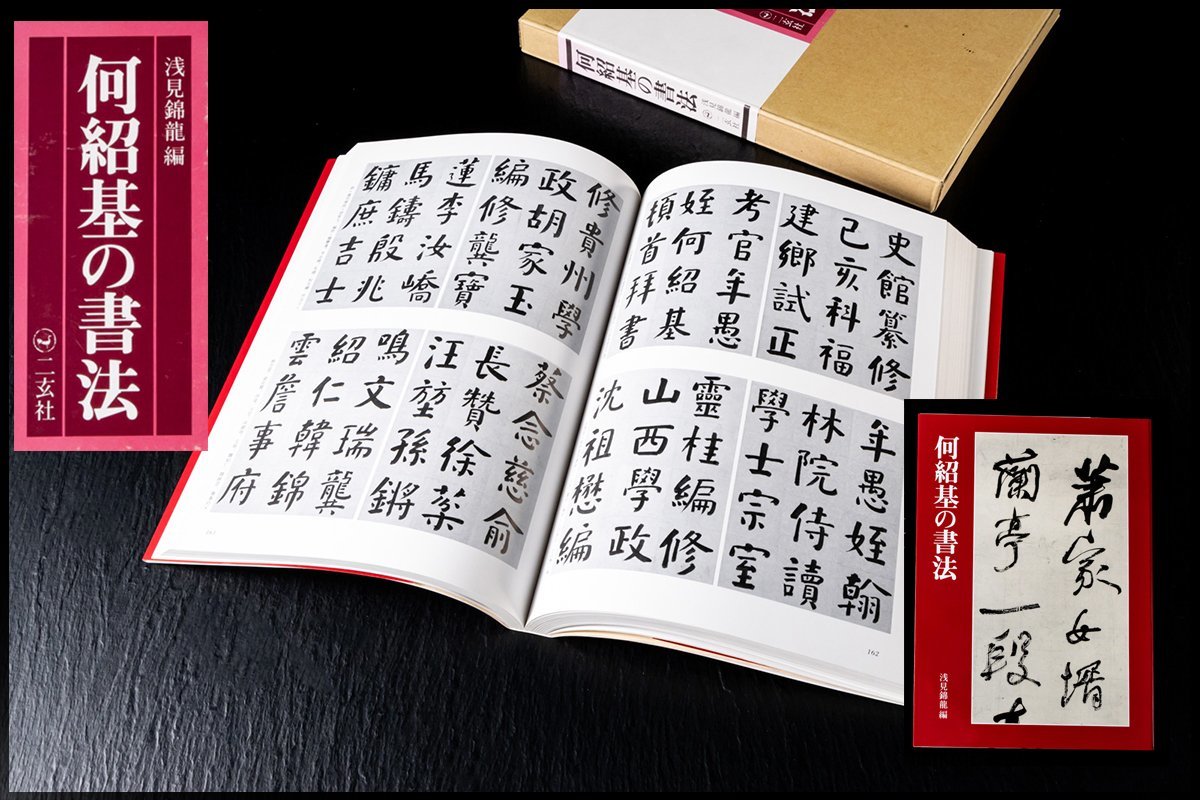 浅見錦龍 編
何紹基の書法
二玄社
二玄社
何紹基の書法
浅見錦龍 編
二玄社
史館纂修
己亥科福
建鄉試正
考官年愚
姪何紹基
頓首拜書
年愚姪翰
林院侍讀
學士宗室
靈桂編修
山西學政
沈祖懋編
162
修貴州學
政胡家玉
編修龔寶
蓮李汝嶠
馬鑄殷兆
鏞庶吉士
蔡念慈俞
長贊徐棻
汪堃孫鏘
鳴文瑞龔
紹仁韓錦
雲詹事府
何紹基の書法
蕭家女壻
蘭亭一段
浅見錦龍 編